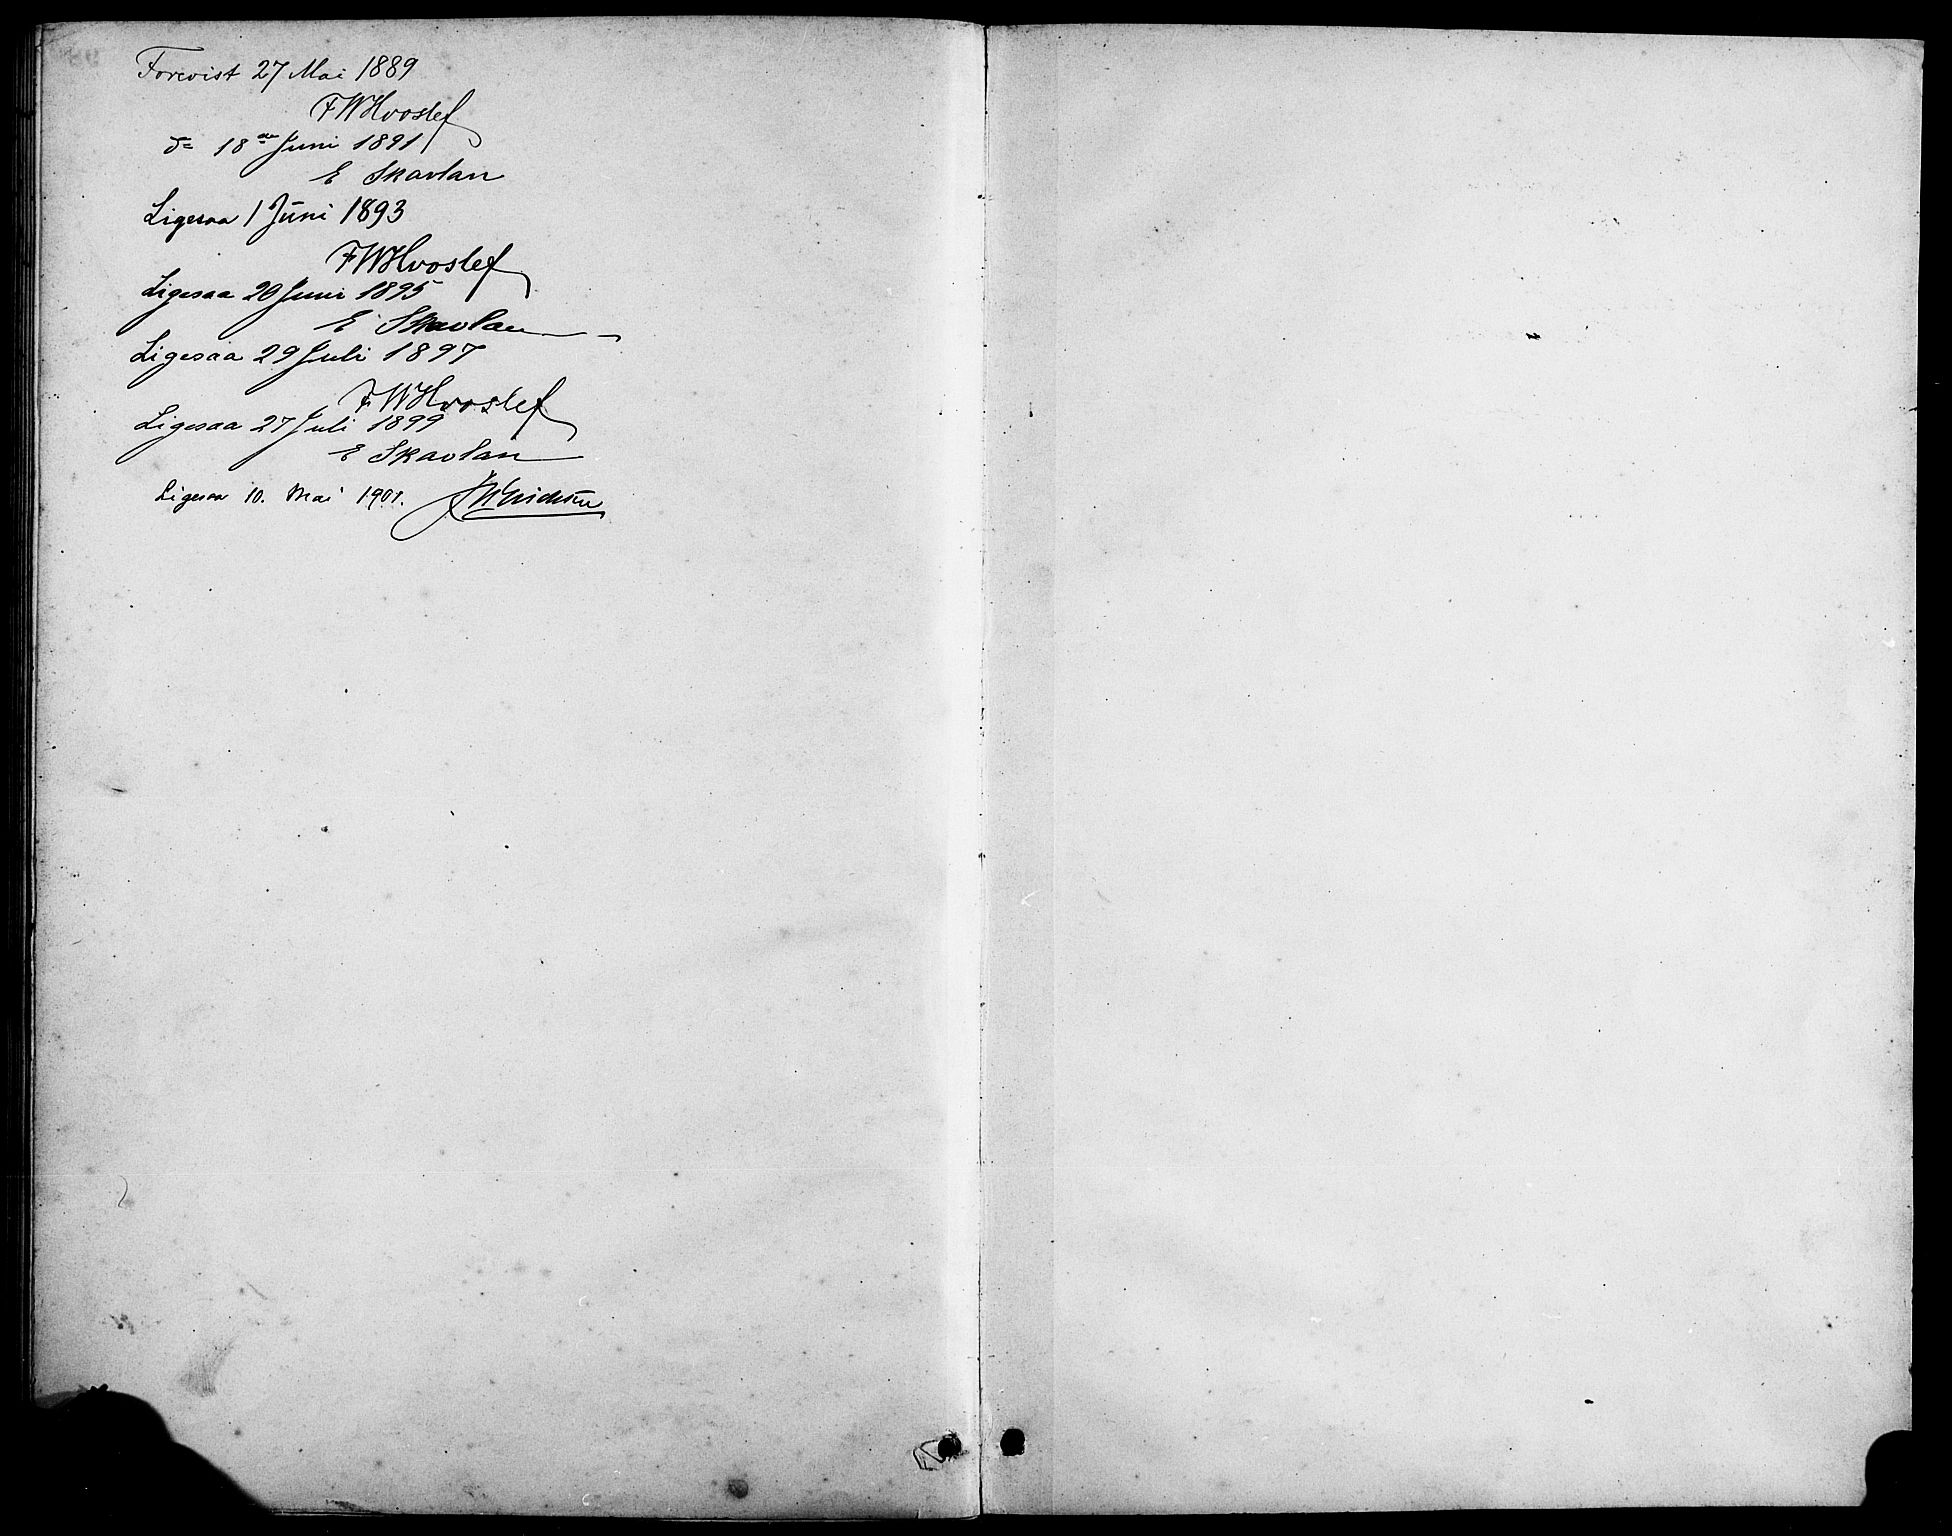 Forevist 27 Mai 1889
FWHvoslef
do 18de Juni 1891
E Skavlan
Ligesaa 1 Juni 1893
FWHvoslef
Ligesaa 20 Juni 1895
E Skavlan
Ligesaa 29 Juli 1897
FWHvoslef
Ligesaa 27 Juli 1899
E Skavlan
Ligesaa 10. Mai 1901.